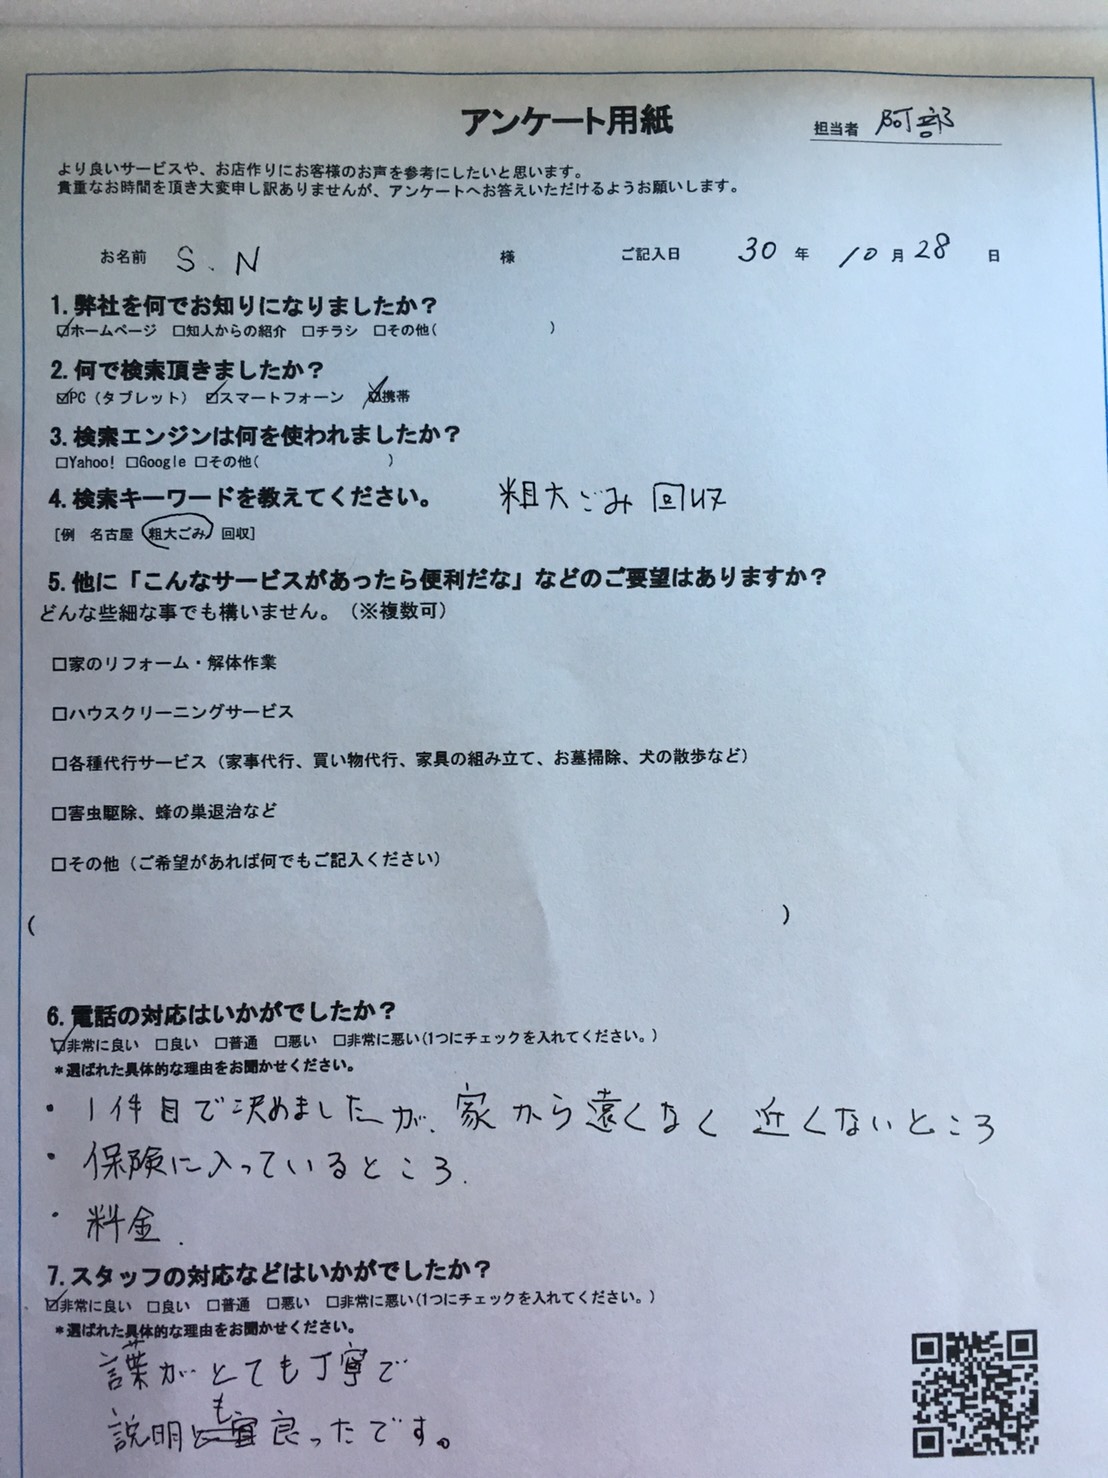 アンケート用紙
担当者 阿部
より良いサービスや、お店作りにお客様のお声を参考にしたいと思います。
貴重なお時間を頂き大変申し訳ありませんが、アンケートへお答えいただけるようお願いします。
お名前 S.N 様 ご記入日 30年 10月28日
1.弊社を何でお知りになりましたか？
☑ホームページ □知人からの紹介 □チラシ □その他( )
2.何で検索頂きましたか？
☑PC（タブレット） ☑スマートフォーン ☑携帯
3.検索エンジンは何を使われましたか？
□Yahoo! □Google □その他( )
4.検索キーワードを教えてください。 粗大ごみ 回収
[例 名古屋 粗大ごみ 回収]
5.他に「こんなサービスがあったら便利だな」などのご要望はありますか？
どんな些細な事でも構いません。（※複数可）
□家のリフォーム・解体作業
□ハウスクリーニングサービス
□各種代行サービス（家事代行、買い物代行、家具の組み立て、お墓掃除、犬の散歩など）
□害虫駆除、蜂の巣退治など
□その他（ご希望があれば何でもご記入ください）
( )
6.電話の対応はいかがでしたか？
☑非常に良い □良い □普通 □悪い □非常に悪い(1つにチェックを入れてください。)
*選ばれた具体的な理由をお聞かせください。
・1件目で決めましたが、家から遠くなく 近くないところ
・保険に入っているところ.
・料金.
7.スタッフの対応などはいかがでしたか？
☑非常に良い □良い □普通 □悪い □非常に悪い(1つにチェックを入れてください。)
*選ばれた具体的な理由をお聞かせください。
言葉がとても丁寧で
説明も良ったです。